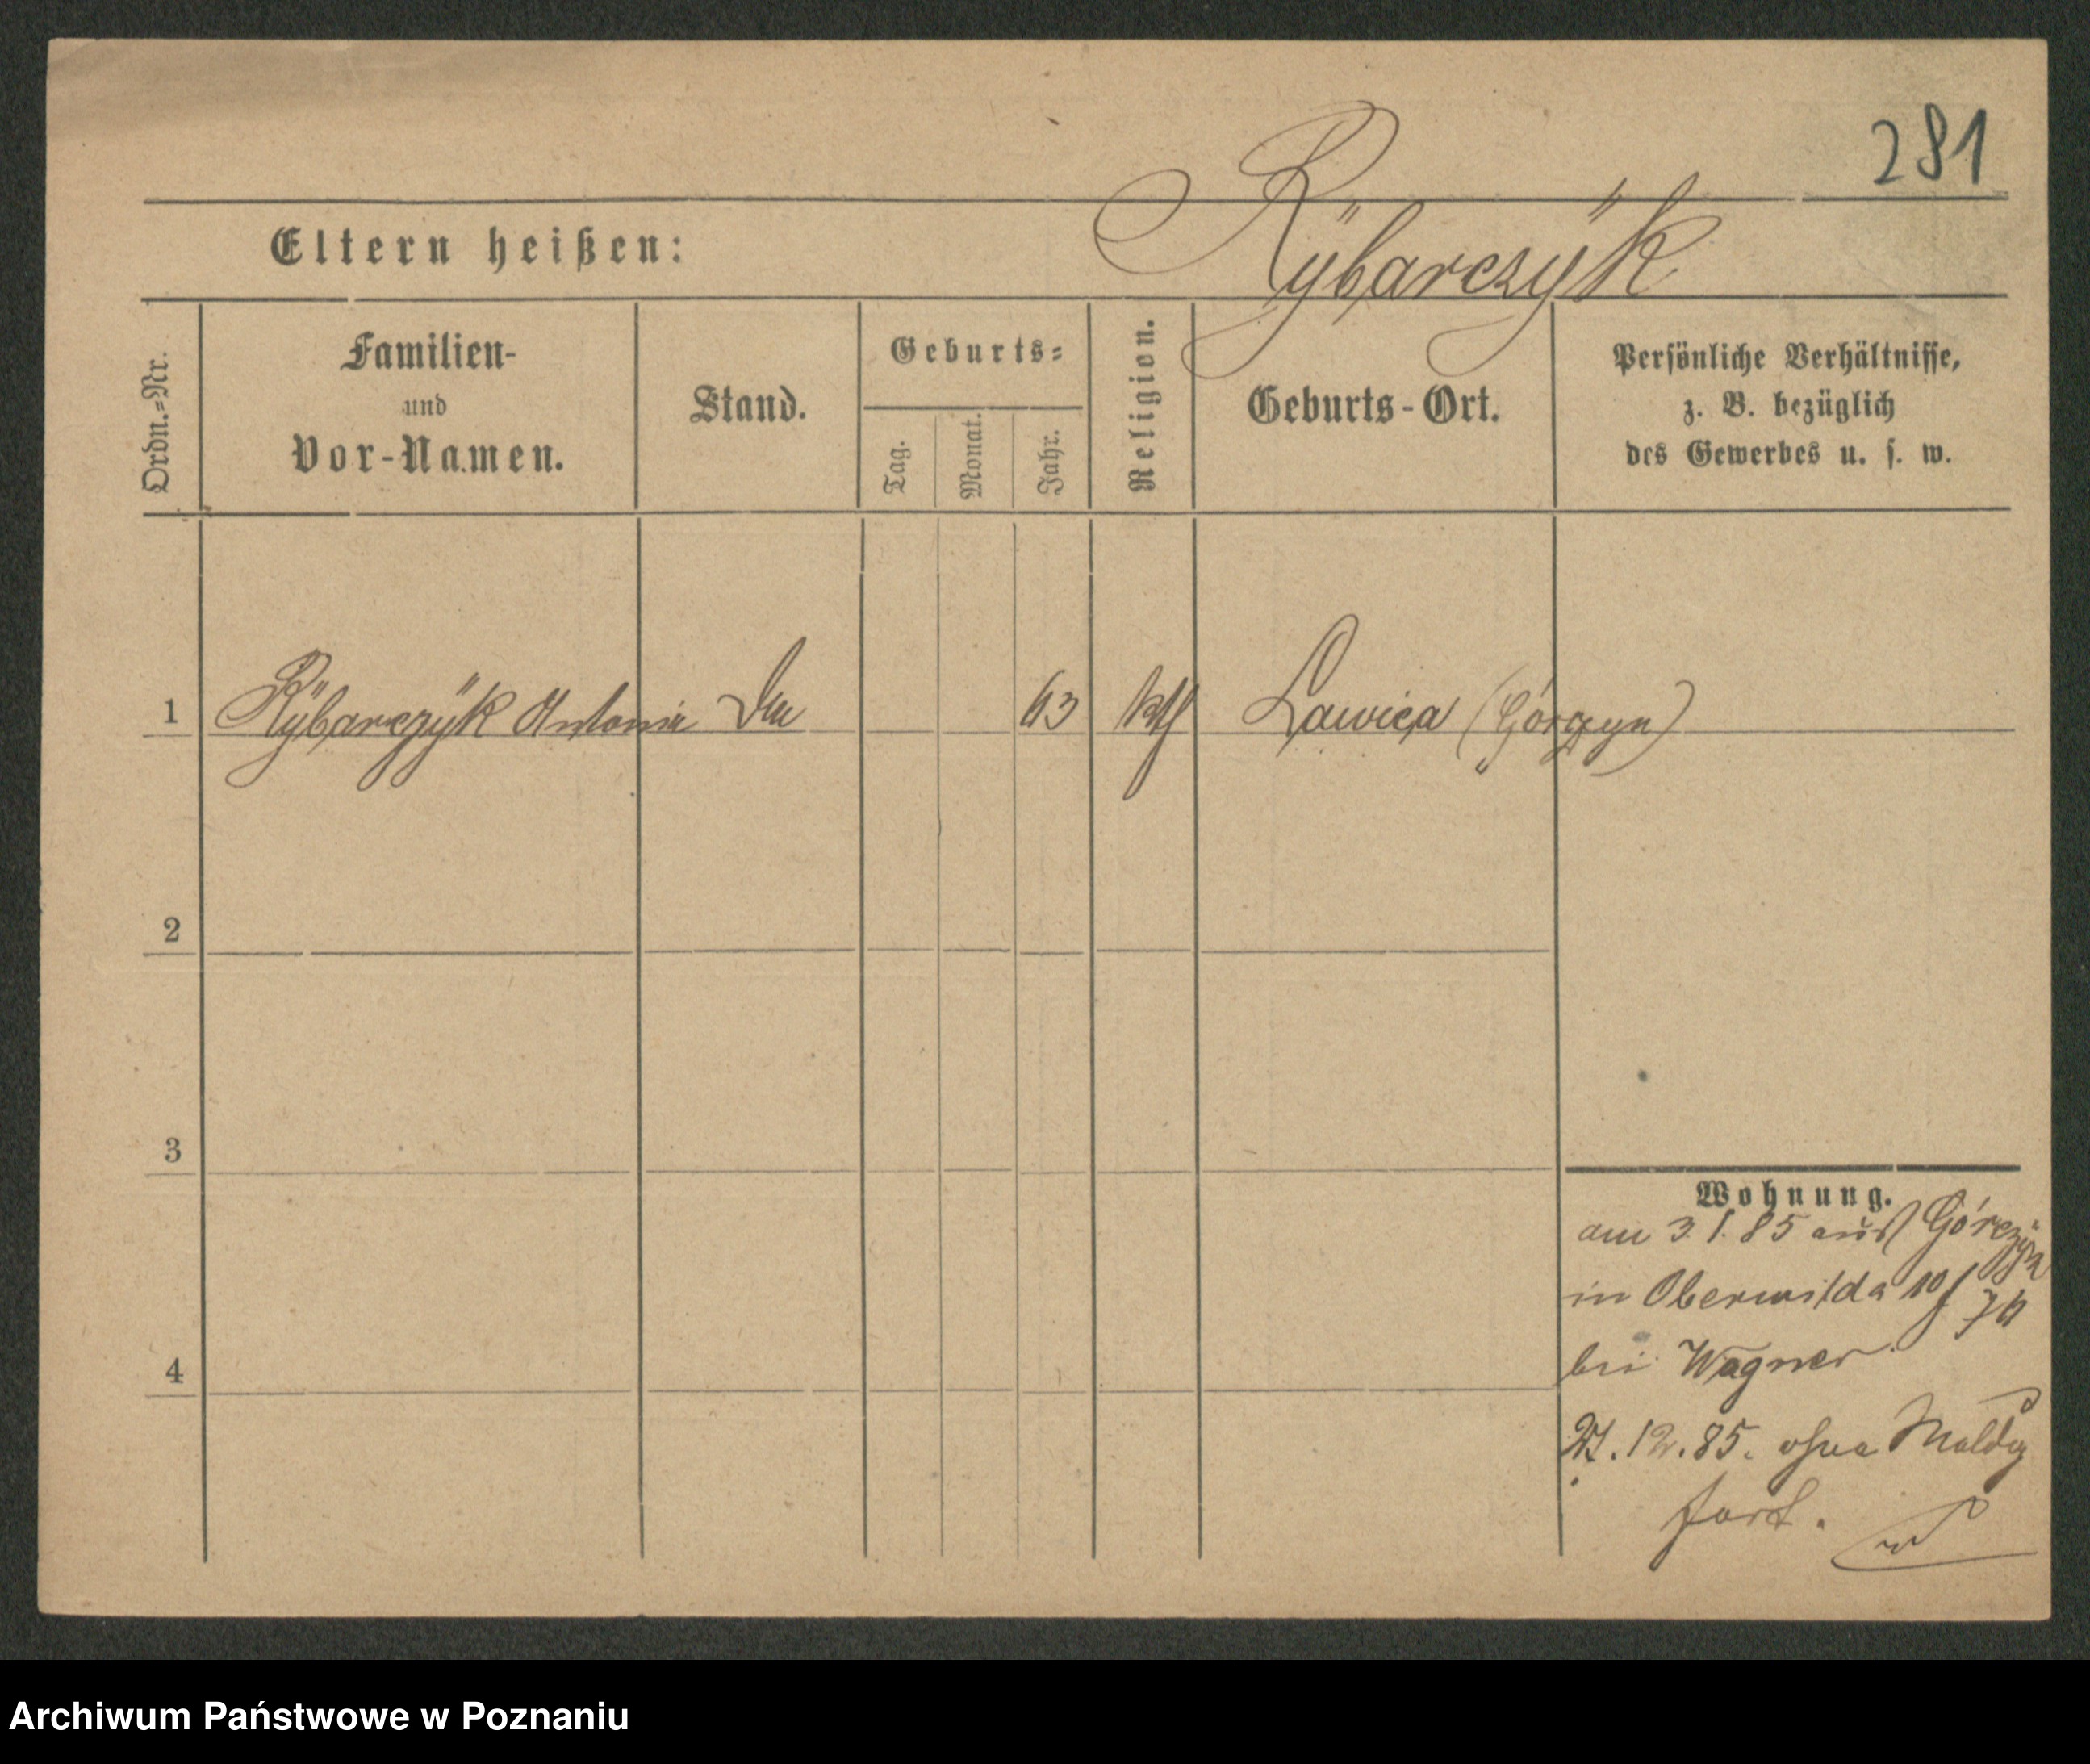 281
Rÿbarczÿk
Eltern heißen:
Ordn.=Nr.
Familien-
und
Vor-Namen.
Stand.
Geburts=
Tag.
Monat.
Jahr.
Religion.
Geburts-Ort.
Persönliche Verhältnisse,
z. B. bezüglich
des Gewerbes u. s. w.
1 Rÿbarczÿk Antonie 63 kth Lawica (Górczyn)
2
3
4
Wohnung.
am 3.1.85 aus Górczÿn
in Oberwilda 10/
bei Wagner
12.85. ohne Meldg
fort.
Archiwum Państwowe w Poznaniu